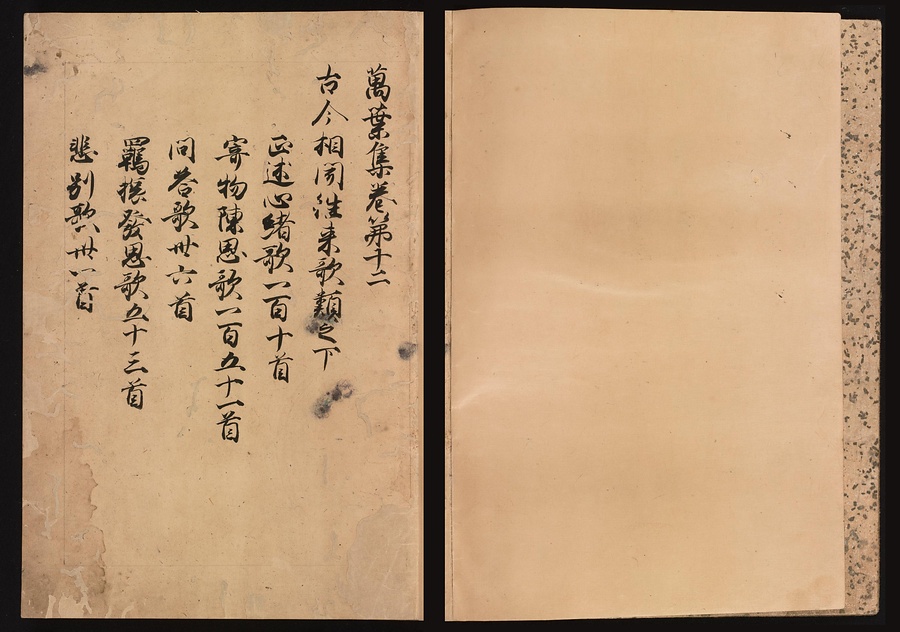 萬葉集巻第十二
古今相聞往来歌類之下
正述心緒歌一百十首
寄物陳思歌一百五十一首
問答歌卅六首
羈旅發思歌五十三首
悲別歌卅一首